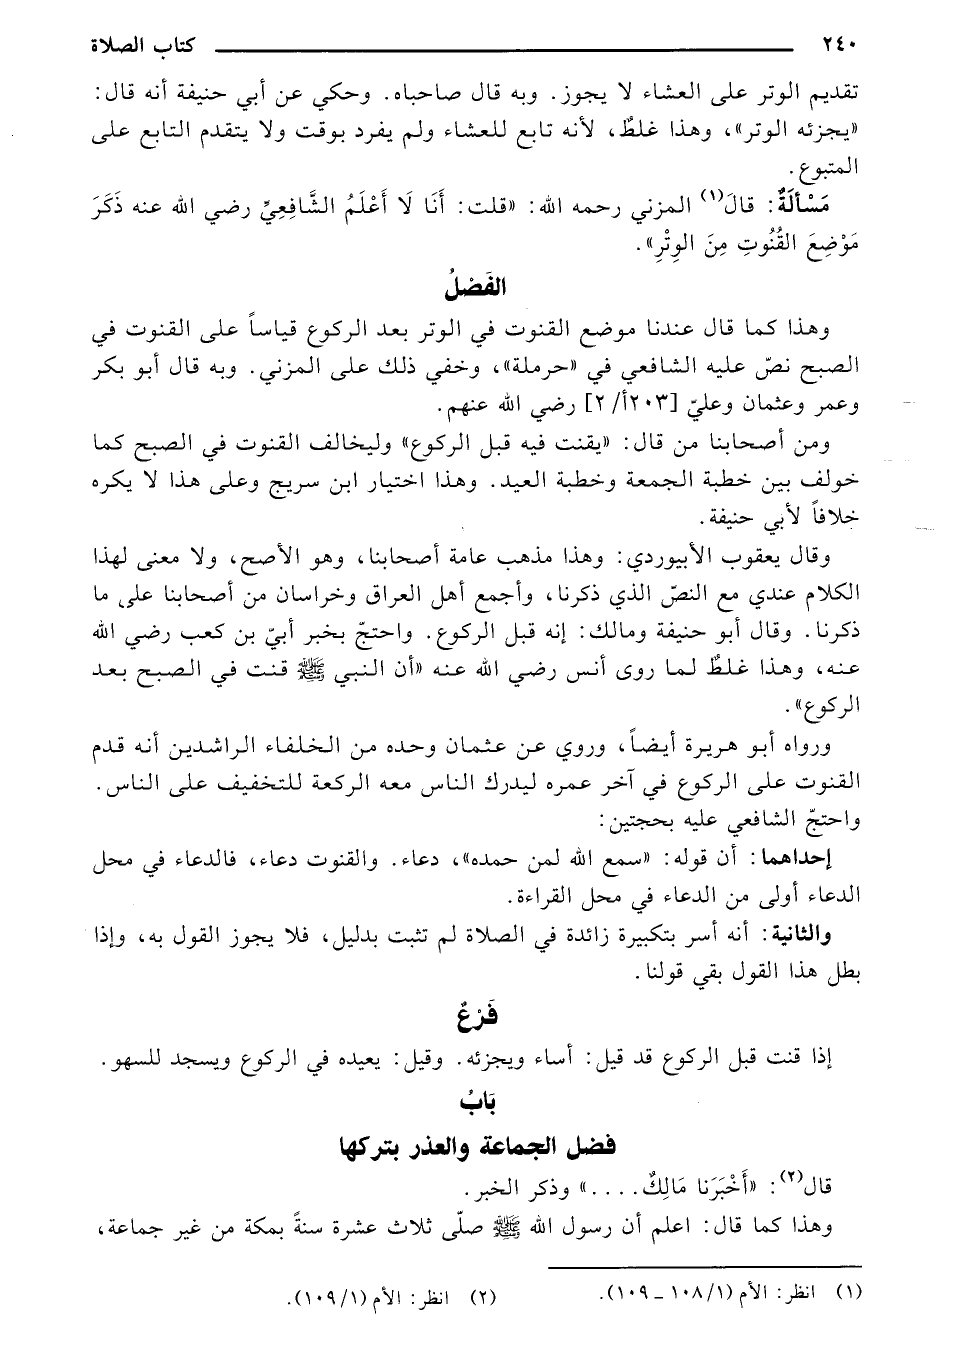 ٢٤٠ كتاب الصلاة
تقديم الوتر على العشاء لا يجوز. وبه قال صاحباه. وحكي عن أبي حنيفة أنه قال:
«يجزئه الوتر»، وهذا غلطٌ، لأنه تابع للعشاء ولم يفرد بوقت ولا يتقدم التابع على
المتبوع.
مَسْأَلَةٌ: قالَ(١) المزني رحمه الله: «قلت: أَنَا لَا أَعْلَمُ الشَّافِعِيِّ رضي الله عنه ذَكَرَ
مَوْضِعَ القُنُوتِ مِنَ الوِتْرِ».
الفَصْلُ
وهذا كما قال عندنا موضع القنوت في الوتر بعد الركوع قياساً على القنوت في
الصبح نصّ عليه الشافعي في «حرملة»، وخفي ذلك على المزني. وبه قال أبو بكر
وعمر وعثمان وعليّ [٢٠٣أ/ ٢] رضي الله عنهم.
ومن أصحابنا من قال: «يقنت فيه قبل الركوع» وليخالف القنوت في الصبح كما
خولف بين خطبة الجمعة وخطبة العيد. وهذا اختيار ابن سريج وعلى هذا لا يكره
خلافاً لأبي حنيفة.
وقال يعقوب الأبيوردي: وهذا مذهب عامة أصحابنا، وهو الأصح، ولا معنى لهذا
الكلام عندي مع النصّ الذي ذكرنا، وأجمع أهل العراق وخراسان من أصحابنا على ما
ذكرنا. وقال أبو حنيفة ومالك: إنه قبل الركوع. واحتجّ بخبر أبيّ بن كعب رضي الله
عنه، وهذا غلطٌ لما روى أنس رضي الله عنه «أن النبي ﷺ قنت في الصبح بعد
الركوع».
ورواه أبو هريرة أيضاً، وروي عن عثمان وحده من الخلفاء الراشدين أنه قدم
القنوت على الركوع في آخر عمره ليدرك الناس معه الركعة للتخفيف على الناس.
واحتجّ الشافعي عليه بحجتين:
إحداهما: أن قوله: «سمع الله لمن حمده»، دعاء. والقنوت دعاء، فالدعاء في محل
الدعاء أولى من الدعاء في محل القراءة.
والثانية: أنه أسر بتكبيرة زائدة في الصلاة لم تثبت بدليل، فلا يجوز القول به، وإذا
بطل هذا القول بقي قولنا.
فَرْعٌ
إذا قنت قبل الركوع قد قيل: أساء ويجزئه. وقيل: يعيده في الركوع ويسجد للسهو.
بَابُ
فضل الجماعة والعذر بتركها
قال(٢): «أَخْبَرَنا مَالِكٌ....» وذكر الخبر.
وهذا كما قال: اعلم أن رسول الله ﷺ صلّى ثلاث عشرة سنةً بمكة من غير جماعة،
(١) انظر: الأم (١٠٨/١ ـ ١٠٩). (٢) انظر: الأم (١٠٩/١).